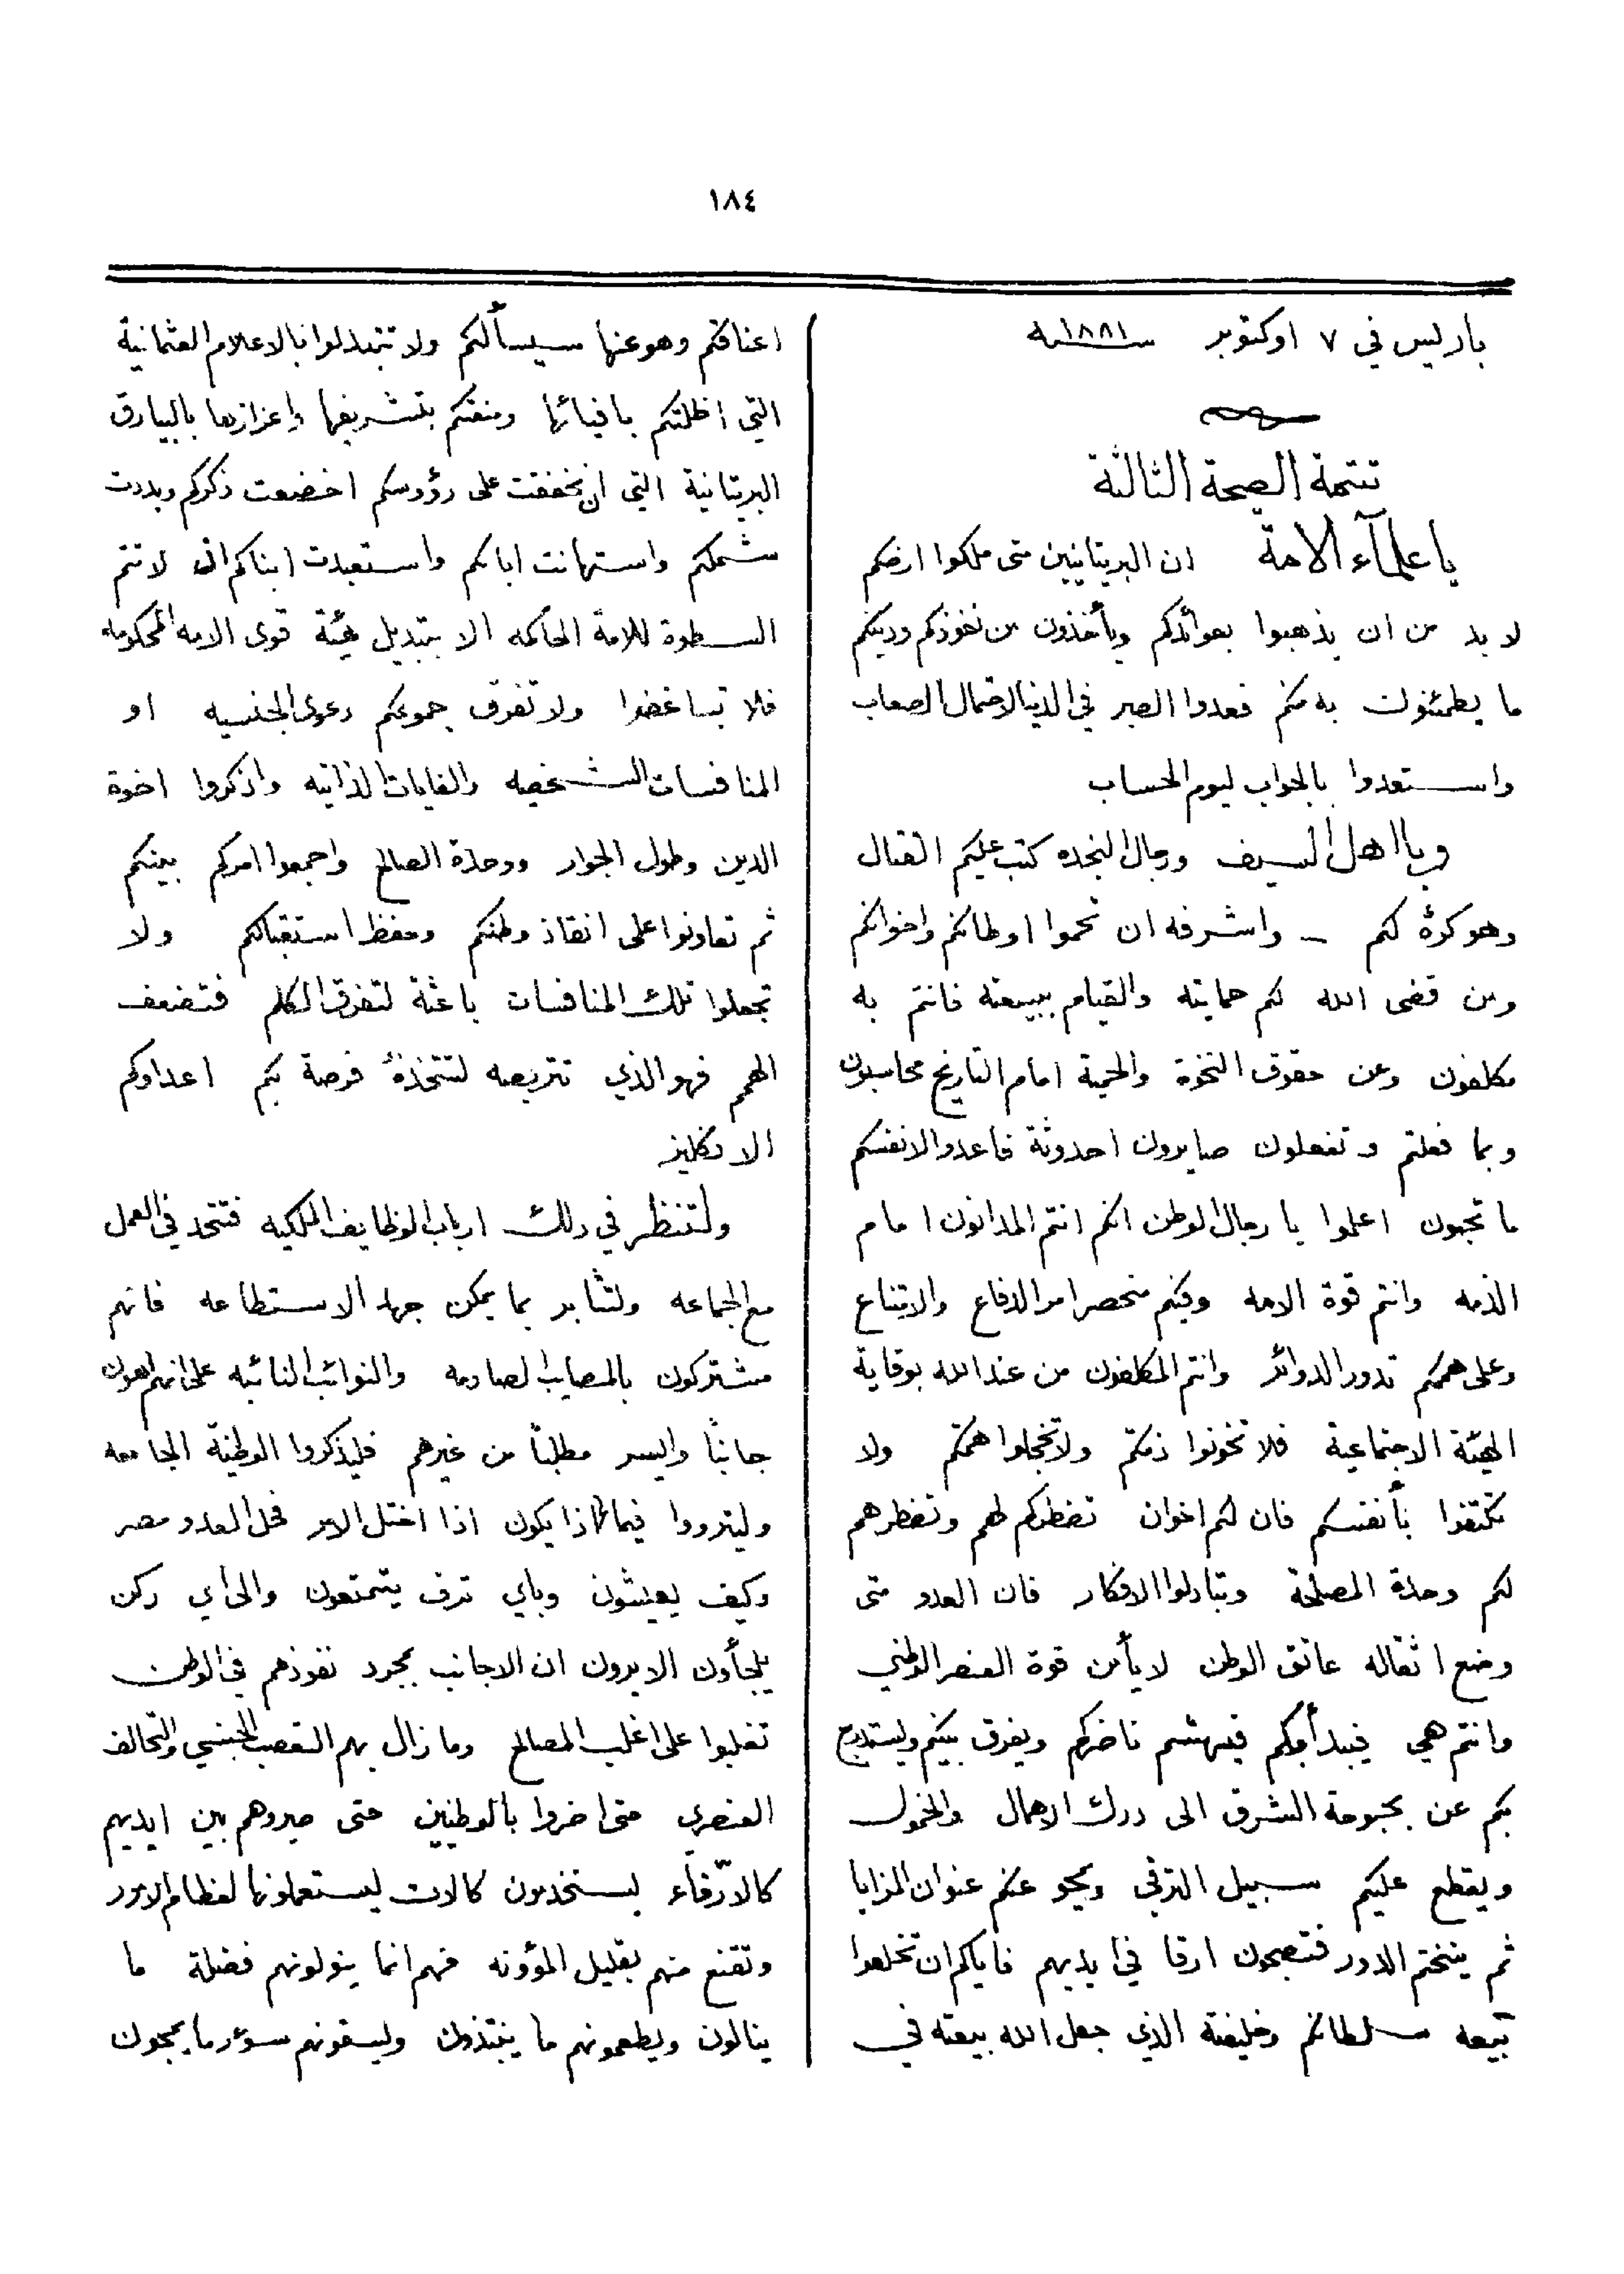 ١٨٤
باريس في ٧ اوكتوبر سنة ١٨٨١
تتمة الصيحة الثالثة
يا علمآء الامة ان البريتانيين متى ملكوا ارضكم
لا بد من ان يذهبوا بعوائدكم ويأخذون من نفوذكم ودينكم
ما يطمئنون به منكم فعدوا الصبر في الدنيا لاحتمال الصعاب
واستعدوا بالجواب ليوم الحساب
ويا اهل السيف ورجال النجده كتب عليكم القتال
وهو كرهٌ لكم – واشرفه ان تحموا اوطانكم واخوانكم
ومن قضى الله لكم حمايته والقيام ببيعته فانتم به
مكلفون وعن حقوق النخوة والحمية امام التاريخ محاسبون
وبما فعلتم وتفعلون صايرون احدوثة فاعدوا لانفسكم
ما تحبون اعلموا يا رجال الوطن انكم انتم المدانون امام
الذمه وانتم قوة الامه وفيكم منحصر امر الدفاع والامتناع
وعلى هممكم تدور الدوائر وانتم المكلفون من عند الله بوقاية
الهيئة الاجتماعية فلا تخونوا ذمتكم ولا تخجلوا هممكم ولا
تكتفوا بأنفسكم فان لكم اخوان تضطركم لهم وتضطرهم
لكم وحدة المصلحة وتبادلوا الافكار فان العدو متى
وضع اثقاله عاتق الوطن لا يأمن قوة العنصر الوطني
وانتم هي فيبدأ بكم فيهشم ناضركم ويفرق بينكم ويستدرج
بكم عن بحبوحة الشرق الى درك الاهمال والخمول
ويقطع عليكم سبيل الترقي ويمحو عنكم عنوان المزايا
ثم يختتم الدور فتصبحون ارقا في ايديهم فاياكم ان تخلعوا
بيعه سلطانكم وخليفته الذي جعل الله بيعته في
اعناقكم وهو عنها سيسألكم ولا تتبدلوا بالاعلام العثمانية
التي اظلتكم بافيائها ومنعتكم بتشريفها واعزازها بالبيارق
البريتانية التي ان خفقت على رؤوسكم اخضعت ذكركم وبددت
شملكم واستهانت اباكم واستعبدت ابناكم اذ لا تتم
السطوة للامة الحاكمه الا بتبديل هيئة قوى الامه المحكومه
فلا تباغضوا ولا تفرق جموعكم دعوى الجنسيه او
المنافسات الشخصيه والغايات الذاتيه واذكروا اخوة
الدين وطول الجوار ووحدة الصالح واجمعوا امركم بينكم
ثم تعاونوا على انقاذ وطنكم وحفظ استقبالكم ولا
تجعلوا تلك المنافسات باعثة لتفرق الكلم فتضعف
الهمم فهو الذي تتربصه لتتخذهُ فرصة بكم اعداوكم
الانكليز
ولتنظر في ذلك ارباب الوظايف الملكيه فتتحد في العمل
مع الجماعه ولتثابر بما يمكن جهد الاستطاعه فانهم
مشتركون بالمصايب الصادمه والنوائب النائبه على انهم اهون
جانباً وايسر مطلباً من غيرهم فليذكروا الوطنية الجامعه
وليترووا فيما اذا يكون اذا اختل الامر فحل العدو مصر
وكيف يعيشون وباي ترف يتمتعون والى اي ركن
يلجأون الا يرون ان الاجانب بمجرد نفوذهم في الوطن
تغلبوا على اغلب المصالح وما زال بهم التعصب الجنسي والتحالف
العنصري حتى اضروا بالوطنيين حتى صيروهم بين ايديهم
كالارّقاء يستخدمون كالات ليستعملونها لعظام الامور
وتقنع منهم بقليل المؤونه فهم انما ينولونهم فضلة ما
ينالون ويطعمونهم ما ينبتذون وليسقونهم سوءر ما يمجون